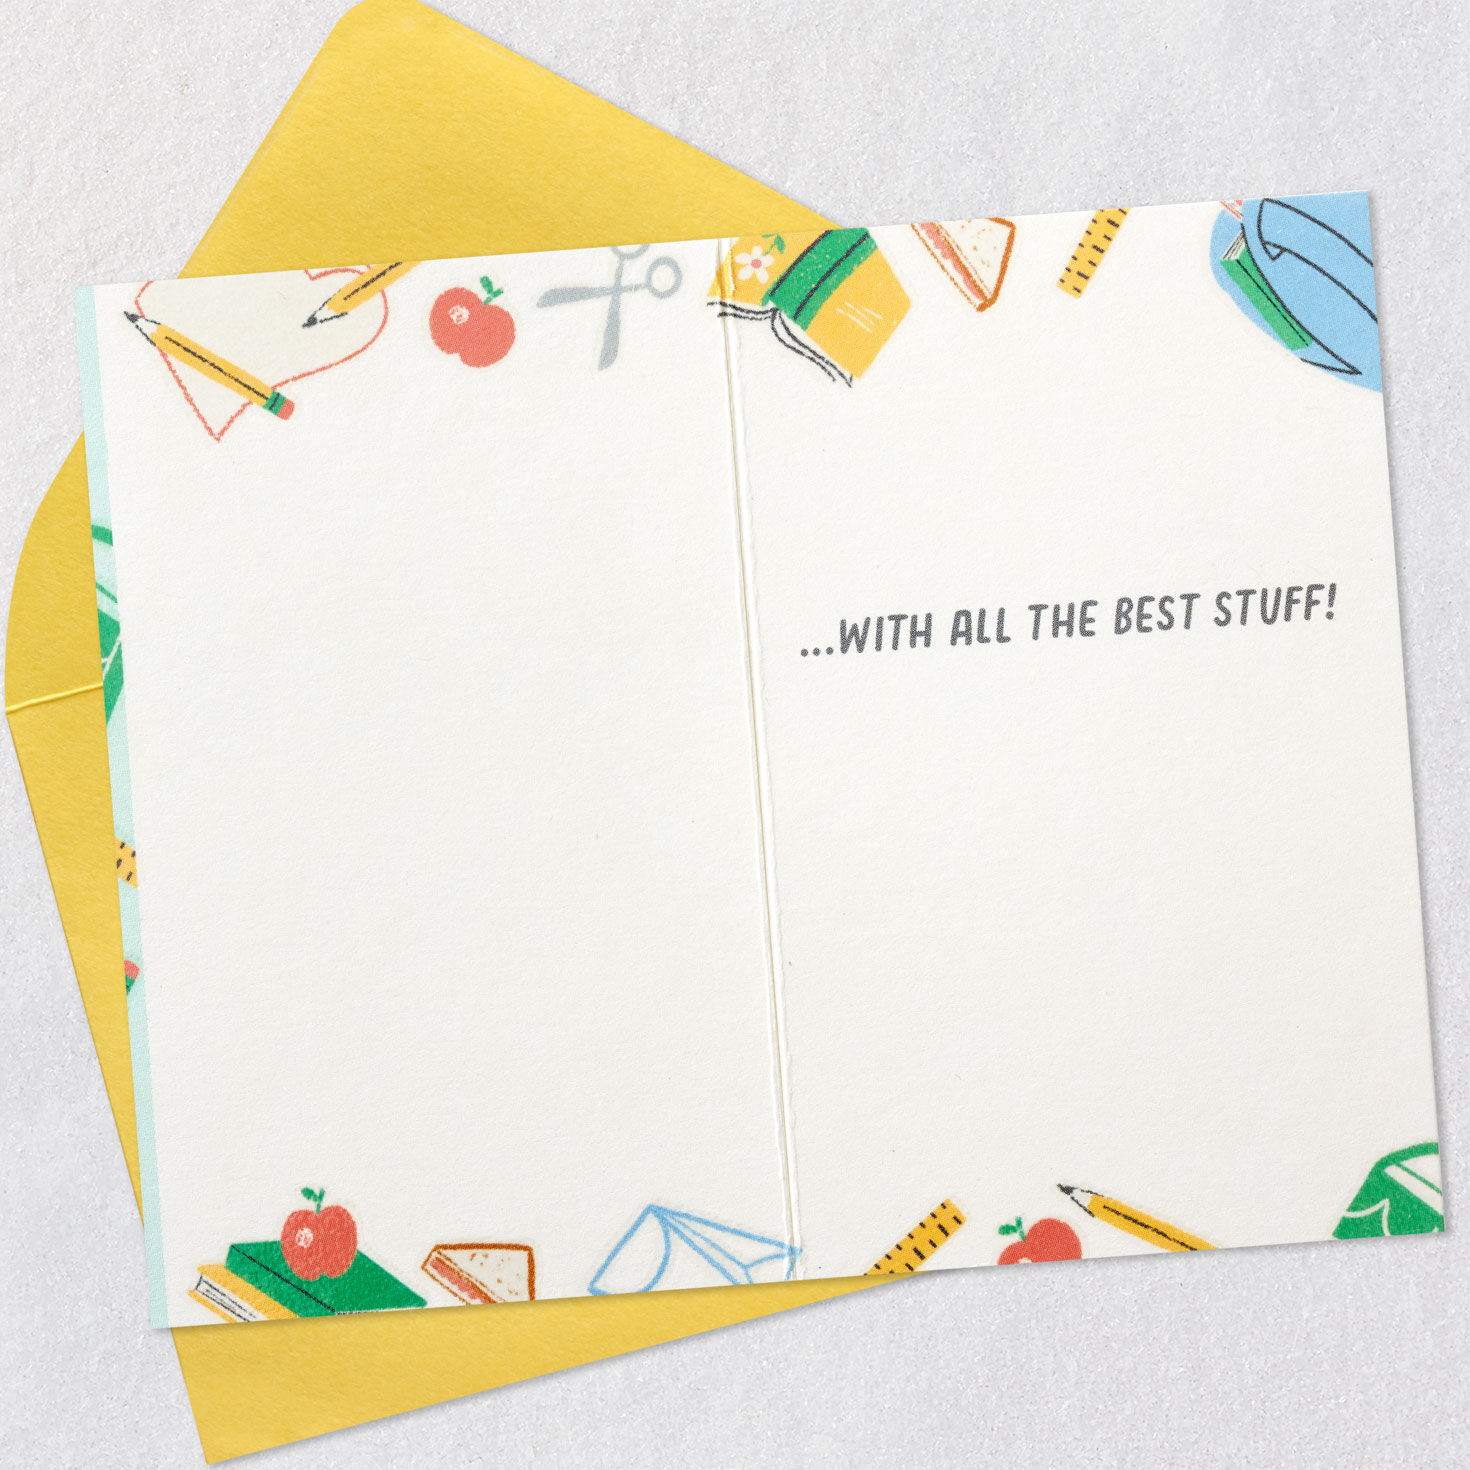 ...WITH ALL THE BEST STUFF!